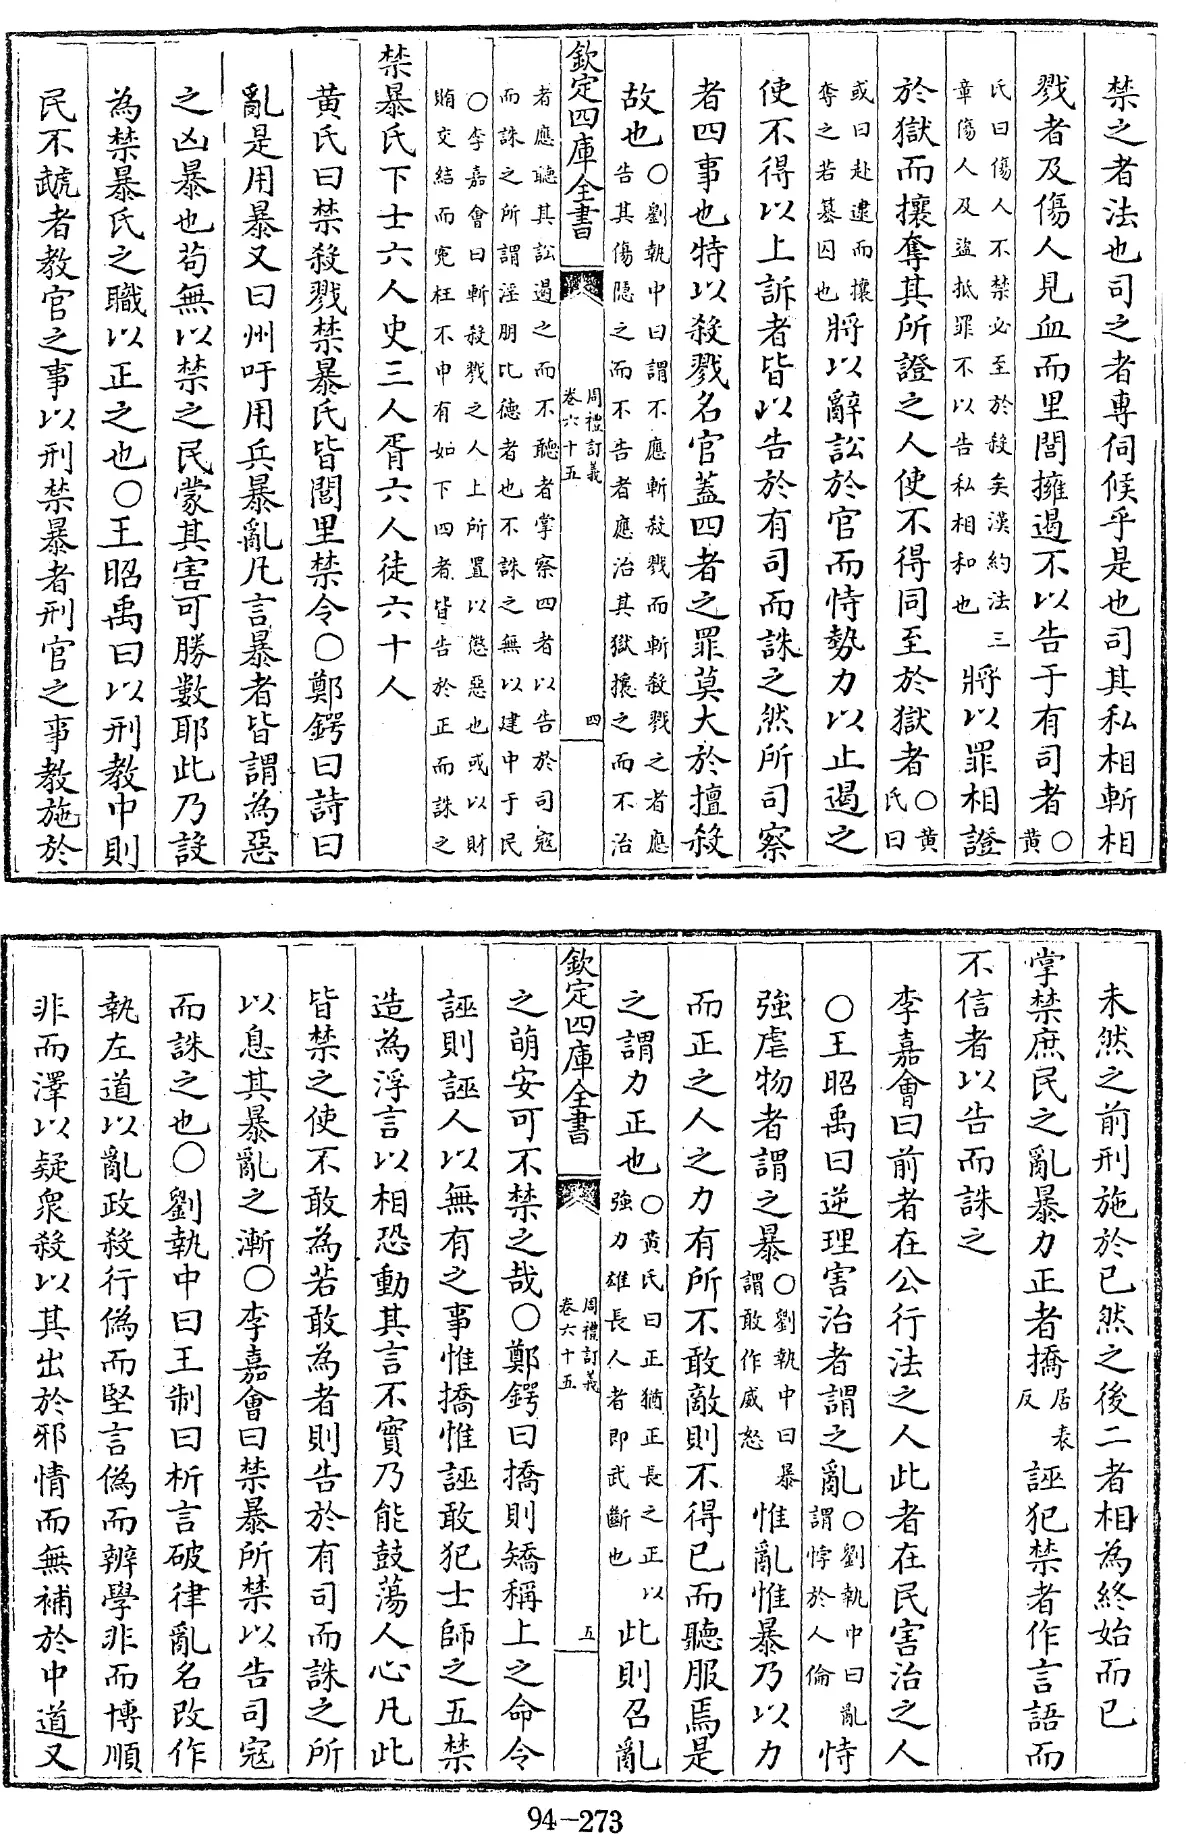 禁之者法也司之者專伺候乎是也司其私相斬相
戮者及傷人見血而里閭擁遏不以告于有司者○黃
氏曰傷人不禁必至於殺矣漢約法三章傷人及盜抵罪不以告私相和也將以罪相證
於獄而攘奪其所證之人使不得同至於獄者○黃氏曰
或曰赴逮而攘奪之若墓囚也將以辭訟於官而恃勢力以止遏之
使不得以上訴者皆以告於有司而誅之然所司察
者四事也特以殺戮名官蓋四者之罪莫大於擅殺
故也○劉執中曰謂不應斬殺戮而斬殺戮之者應告其傷隱之而不告者應治其獄攘之而不治
欽定四庫全書 周禮訂義 卷六十五 四
者應聽其訟遏之而不聽者掌察四者以告於司寇而誅之所謂淫朋比德者也不誅之無以建中于民
○李嘉會曰斬殺戮之人上所置以懲惡也或以財賄交結而寃枉不申有如下四者皆告於正而誅之
禁暴氏下士六人史三人胥六人徒六十人
黃氏曰禁殺戮禁暴氏皆閭里禁令○鄭鍔曰詩曰
亂是用暴又曰州吁用兵暴亂凡言暴者皆謂為惡
之凶暴也苟無以禁之民蒙其害可勝數耶此乃設
為禁暴氏之職以正之也○王昭禹曰以刑教中則
民不虣者教官之事以刑禁暴者刑官之事教施於
未然之前刑施於已然之後二者相為終始而已
掌禁庶民之亂暴力正者撟居表反誣犯禁者作言語而
不信者以告而誅之
李嘉會曰前者在公行法之人此者在民害治之人
○王昭禹曰逆理害治者謂之亂○劉執中曰亂謂悖於人倫恃
強虐物者謂之暴○劉執中曰暴謂敢作威怒惟亂惟暴乃以力
而正之人之力有所不敢敵則不得已而聽服焉是
之謂力正也○黃氏曰正猶正長之正以強力雄長人者即武斷也此則召亂
欽定四庫全書 周禮訂義 卷六十五 五
之萌安可不禁之哉○鄭鍔曰撟則矯稱上之命令
誣則誣人以無有之事惟撟惟誣敢犯士師之五禁
造為浮言以相恐動其言不實乃能鼓蕩人心凡此
皆禁之使不敢為若敢為者則告於有司而誅之所
以息其暴亂之漸○李嘉會曰禁暴所禁以告司寇
而誅之也○劉執中曰王制曰析言破律亂名改作
執左道以亂政殺行偽而堅言偽而辨學非而博順
非而澤以疑衆殺以其出於邪情而無補於中道又
94-273